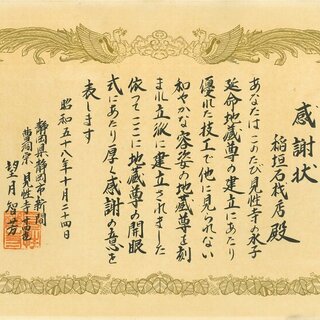 感謝状
稲垣石材店殿
あなたはこのたび見性寺の水子
延命地蔵尊の建立にあたり
優れた技工で他に見られない
和やかな容姿の地蔵尊を刻
まれ立派に建立されました
依てここに地蔵尊の開眼
式にあたり厚く感謝の意を
表します
昭和五十八年十月二十四日
静岡県静岡市新間
曹洞宗 見性寺
望月